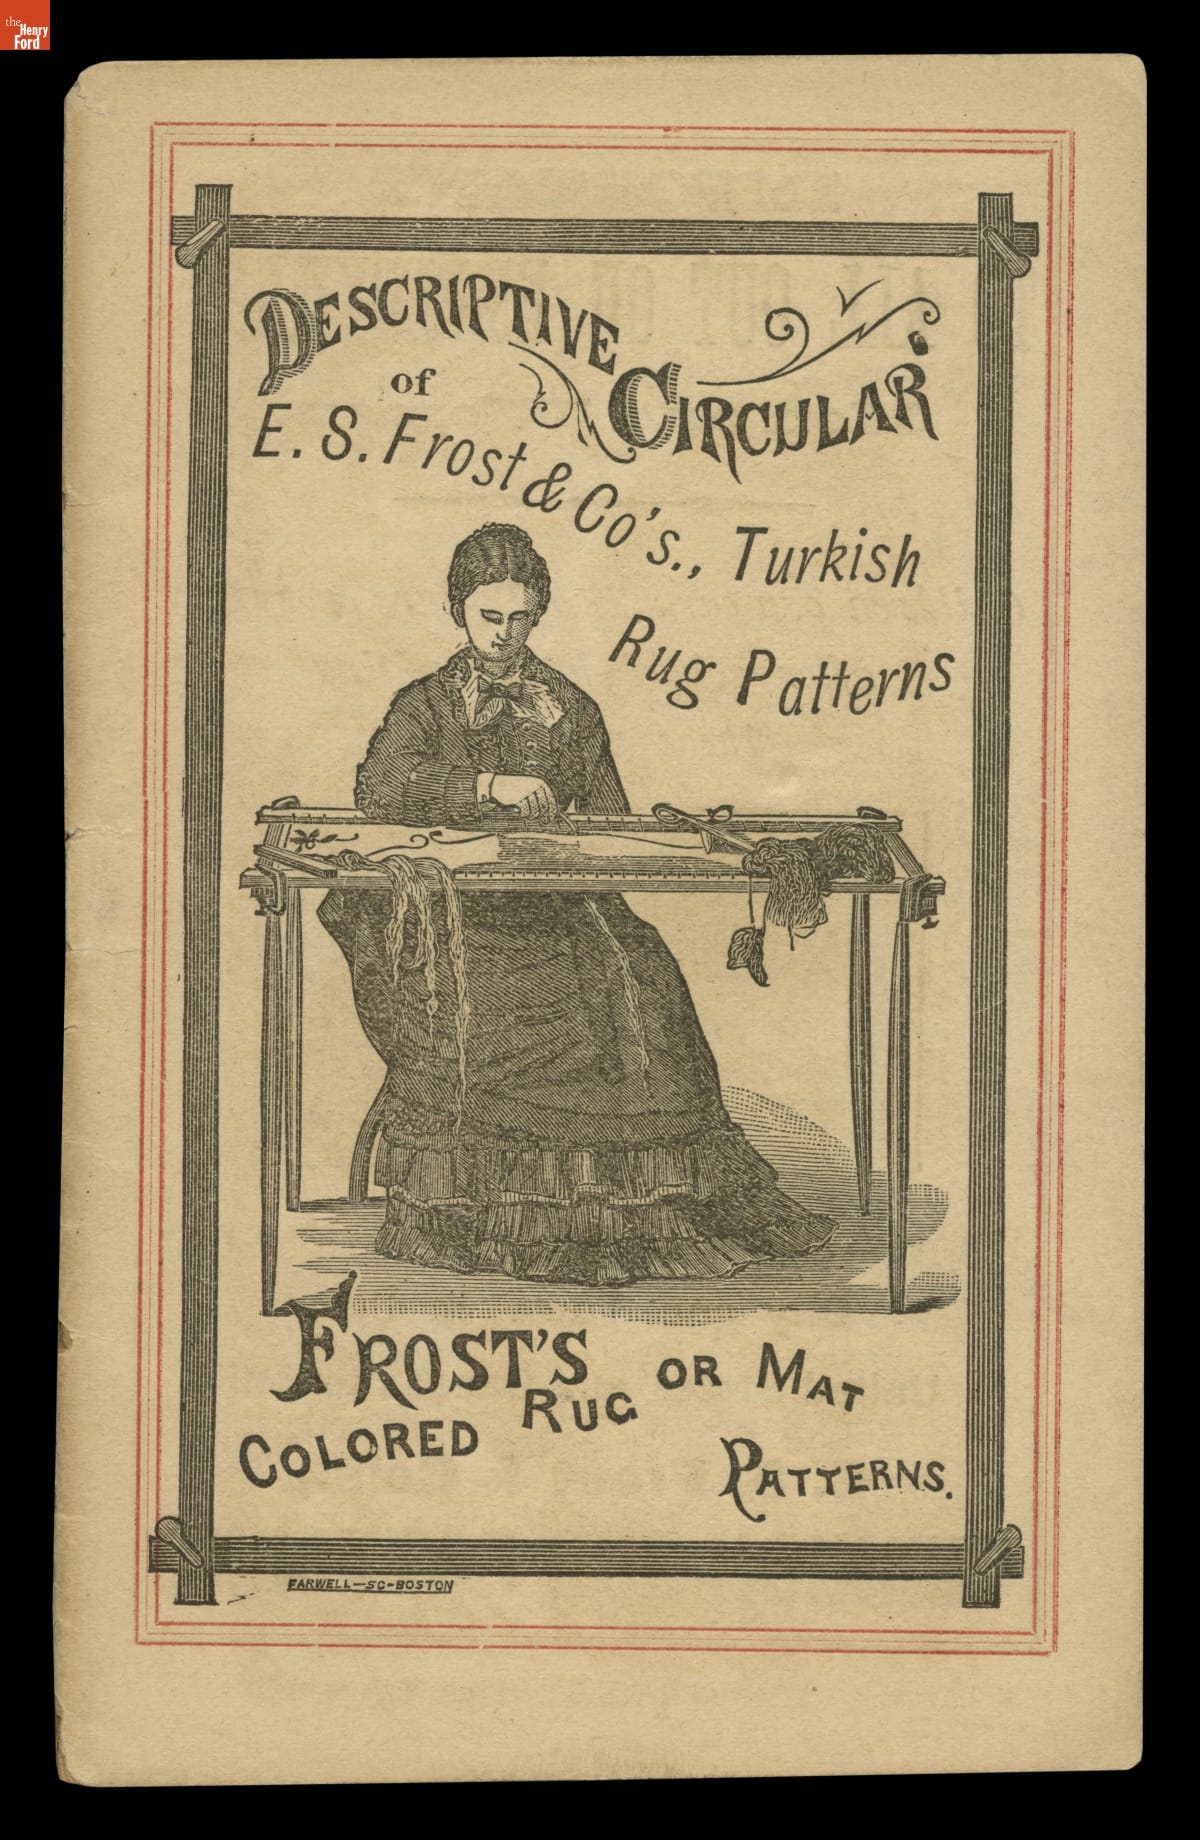 the
Henry
Ford
DESCRIPTIVE
CIRCULAR
of
E. S. Frost & Co's., Turkish
Rug Patterns
FROST'S
COLORED RUG OR MAT
PATTERNS.
FARWELL—SC-BOSTON